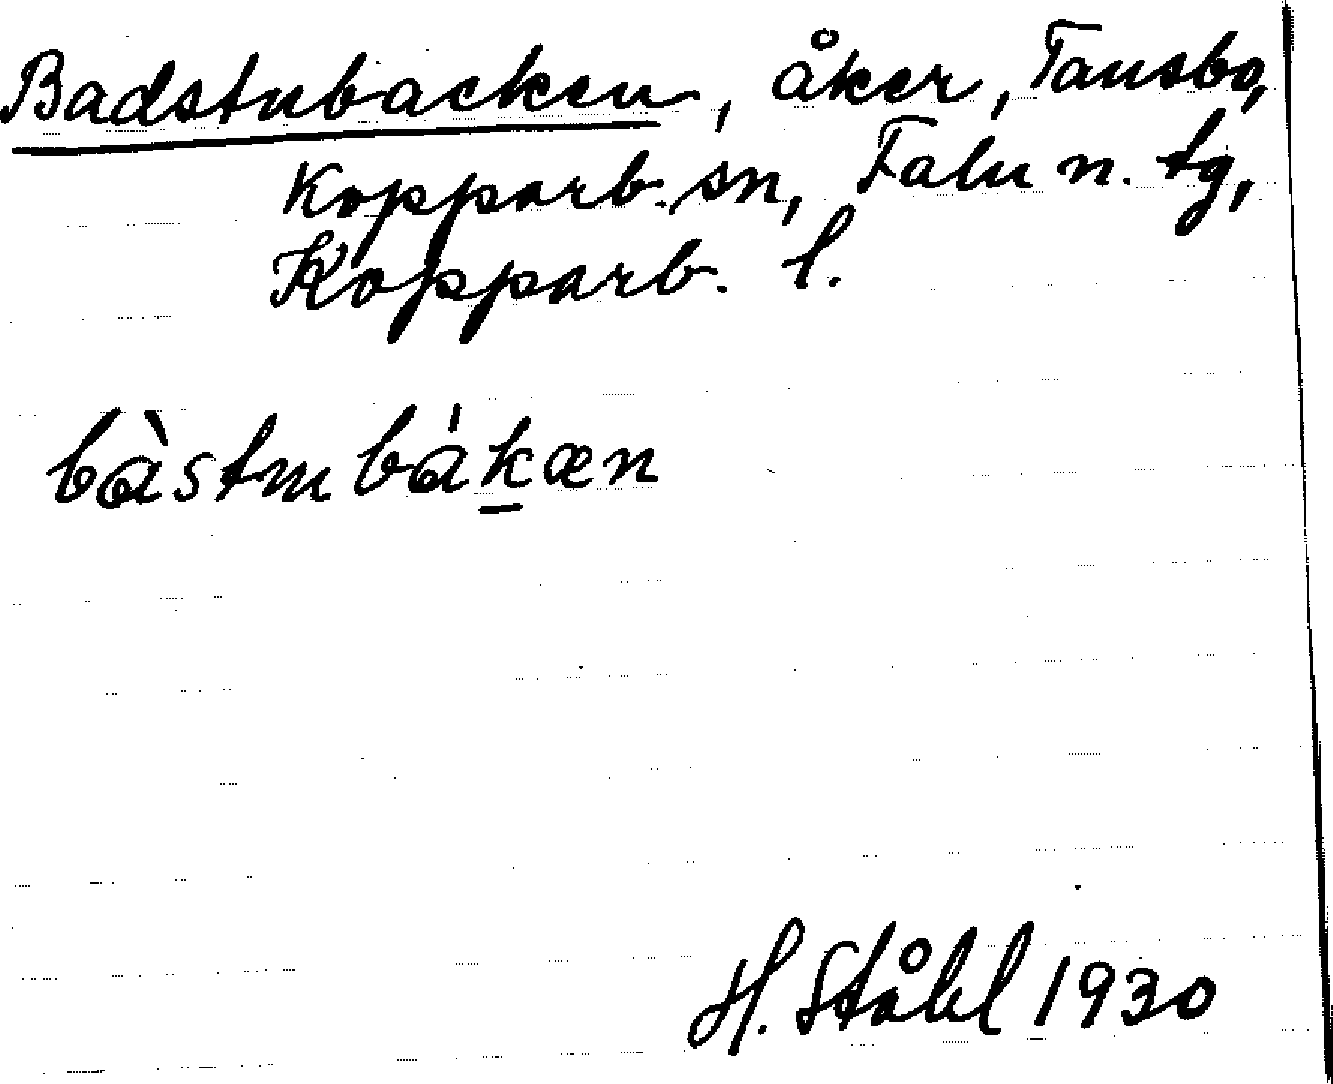 Badstubacken, åker, Tansbo,
Kopparb. sn, Falu n. tg,
Kopparb. l.
bàstmbákæn
H. Ståhl 1930